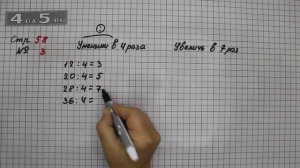 4 НА 5.RU
Стр 58
№ 3
:
Уменьши в 4 раза
Увеличь в 7 раз
12 : 4 = 3
20 : 4 = 5
28 : 4 = 7
36 : 4 =